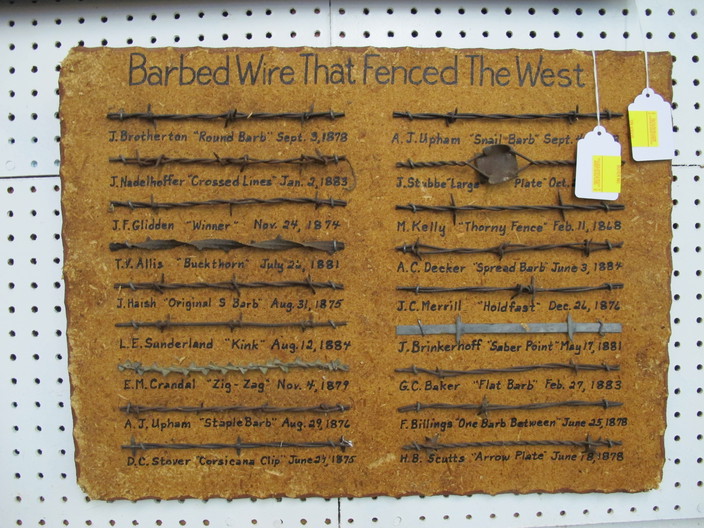 Barbed Wire That Fenced The West
J. Brotherton "Round Barb" Sept. 3, 1878
J. Nadelhoffer "Crossed Lines" Jan. 2, 1883
J.F. Glidden "Winner" Nov. 24, 1874
T.V. Allis "Buckthorn" July 26, 1881
J. Haish "Original S Barb" Aug. 31, 1875
L.E. Sunderland "Kink" Aug. 12, 1884
E.M. Crandal "Zig-Zag" Nov. 4, 1879
A.J. Upham "Staple Barb" Aug. 29, 1876
D.C. Stover "Corsicana Clip" June 29, 1875
A.J. Upham "Snail Barb" Sept.
J. Stubbe "Large Plate" Oct.
M. Kelly "Thorny Fence" Feb. 11, 1868
A.C. Decker "Spread Barb" June 3, 1884
J.C. Merrill "Holdfast" Dec. 26, 1876
J. Brinkerhoff "Saber Point" May 17, 1881
G.C. Baker "Flat Barb" Feb. 27, 1883
F. Billings "One Barb Between" June 25, 1878
H.B. Scutts "Arrow Plate" June 18, 1878